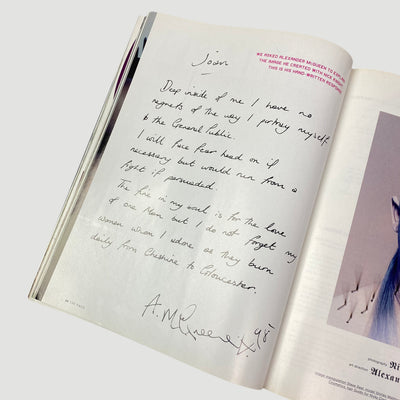 WE ASKED ALEXANDER MCQUEEN TO EXPLAIN
THE IMAGE HE CREATED WITH NICK KNIGHT.
THIS IS HIS HAND-WRITTEN RESPONSE
joan
Deep inside of me I have no
regrets of the way I portray myself
to the General Public.
I will face fear head on if
necessary but would run from a
fight if persuaded.
The fire in my soul is for the love
of one Man but I do not forget my
women whom I adore as they burn
daily from Cheshire to Gloucester.
A. McQueen 98
THE FACE
photography Ni
art direction Alexan